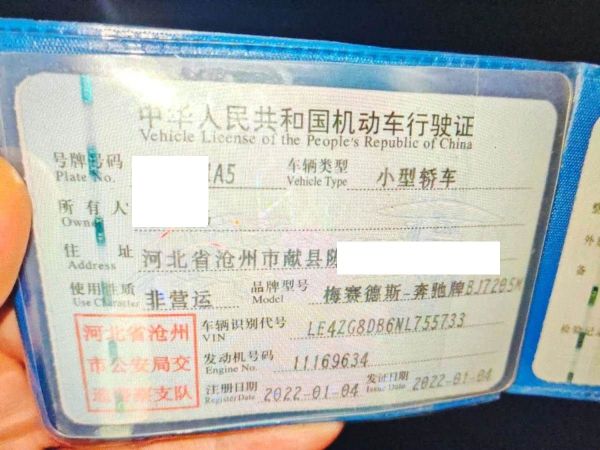 中华人民共和国机动车行驶证
Vehicle License of the People's Republic of China
号牌号码 A5 车辆类型 小型轿车
Plate No. Vehicle Type
所有人
Owner
住址 河北省沧州市献县
Address
使用性质 非营运 品牌型号 梅赛德斯-奔驰牌BJ7205
Use Character Model
河北省沧州 车辆识别代号 LE4ZG8DB6NL755733
VIN
市公安局交 发动机号码 11169634
Engine No.
通警察支队 注册日期 2022-01-04 发证日期 2022-01-04
Register Date Issue Date